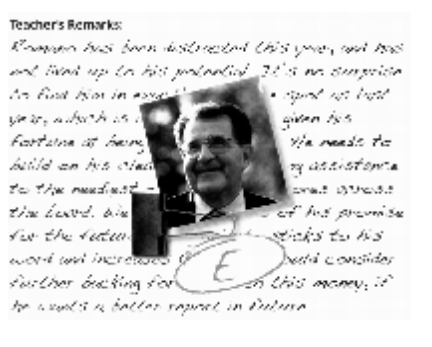 Teacher's Remarks:
Romano has been distracted this year, and has
not lived up to his potential. It's no surprise
to find him in spot as last
year, which is given his
fortune at being He needs to
build on his assistance
to the neediest across
the board. We of his promise
for the future sticks to his
word and increases could consider
further backing for this money, if
he wants a better report in future
E